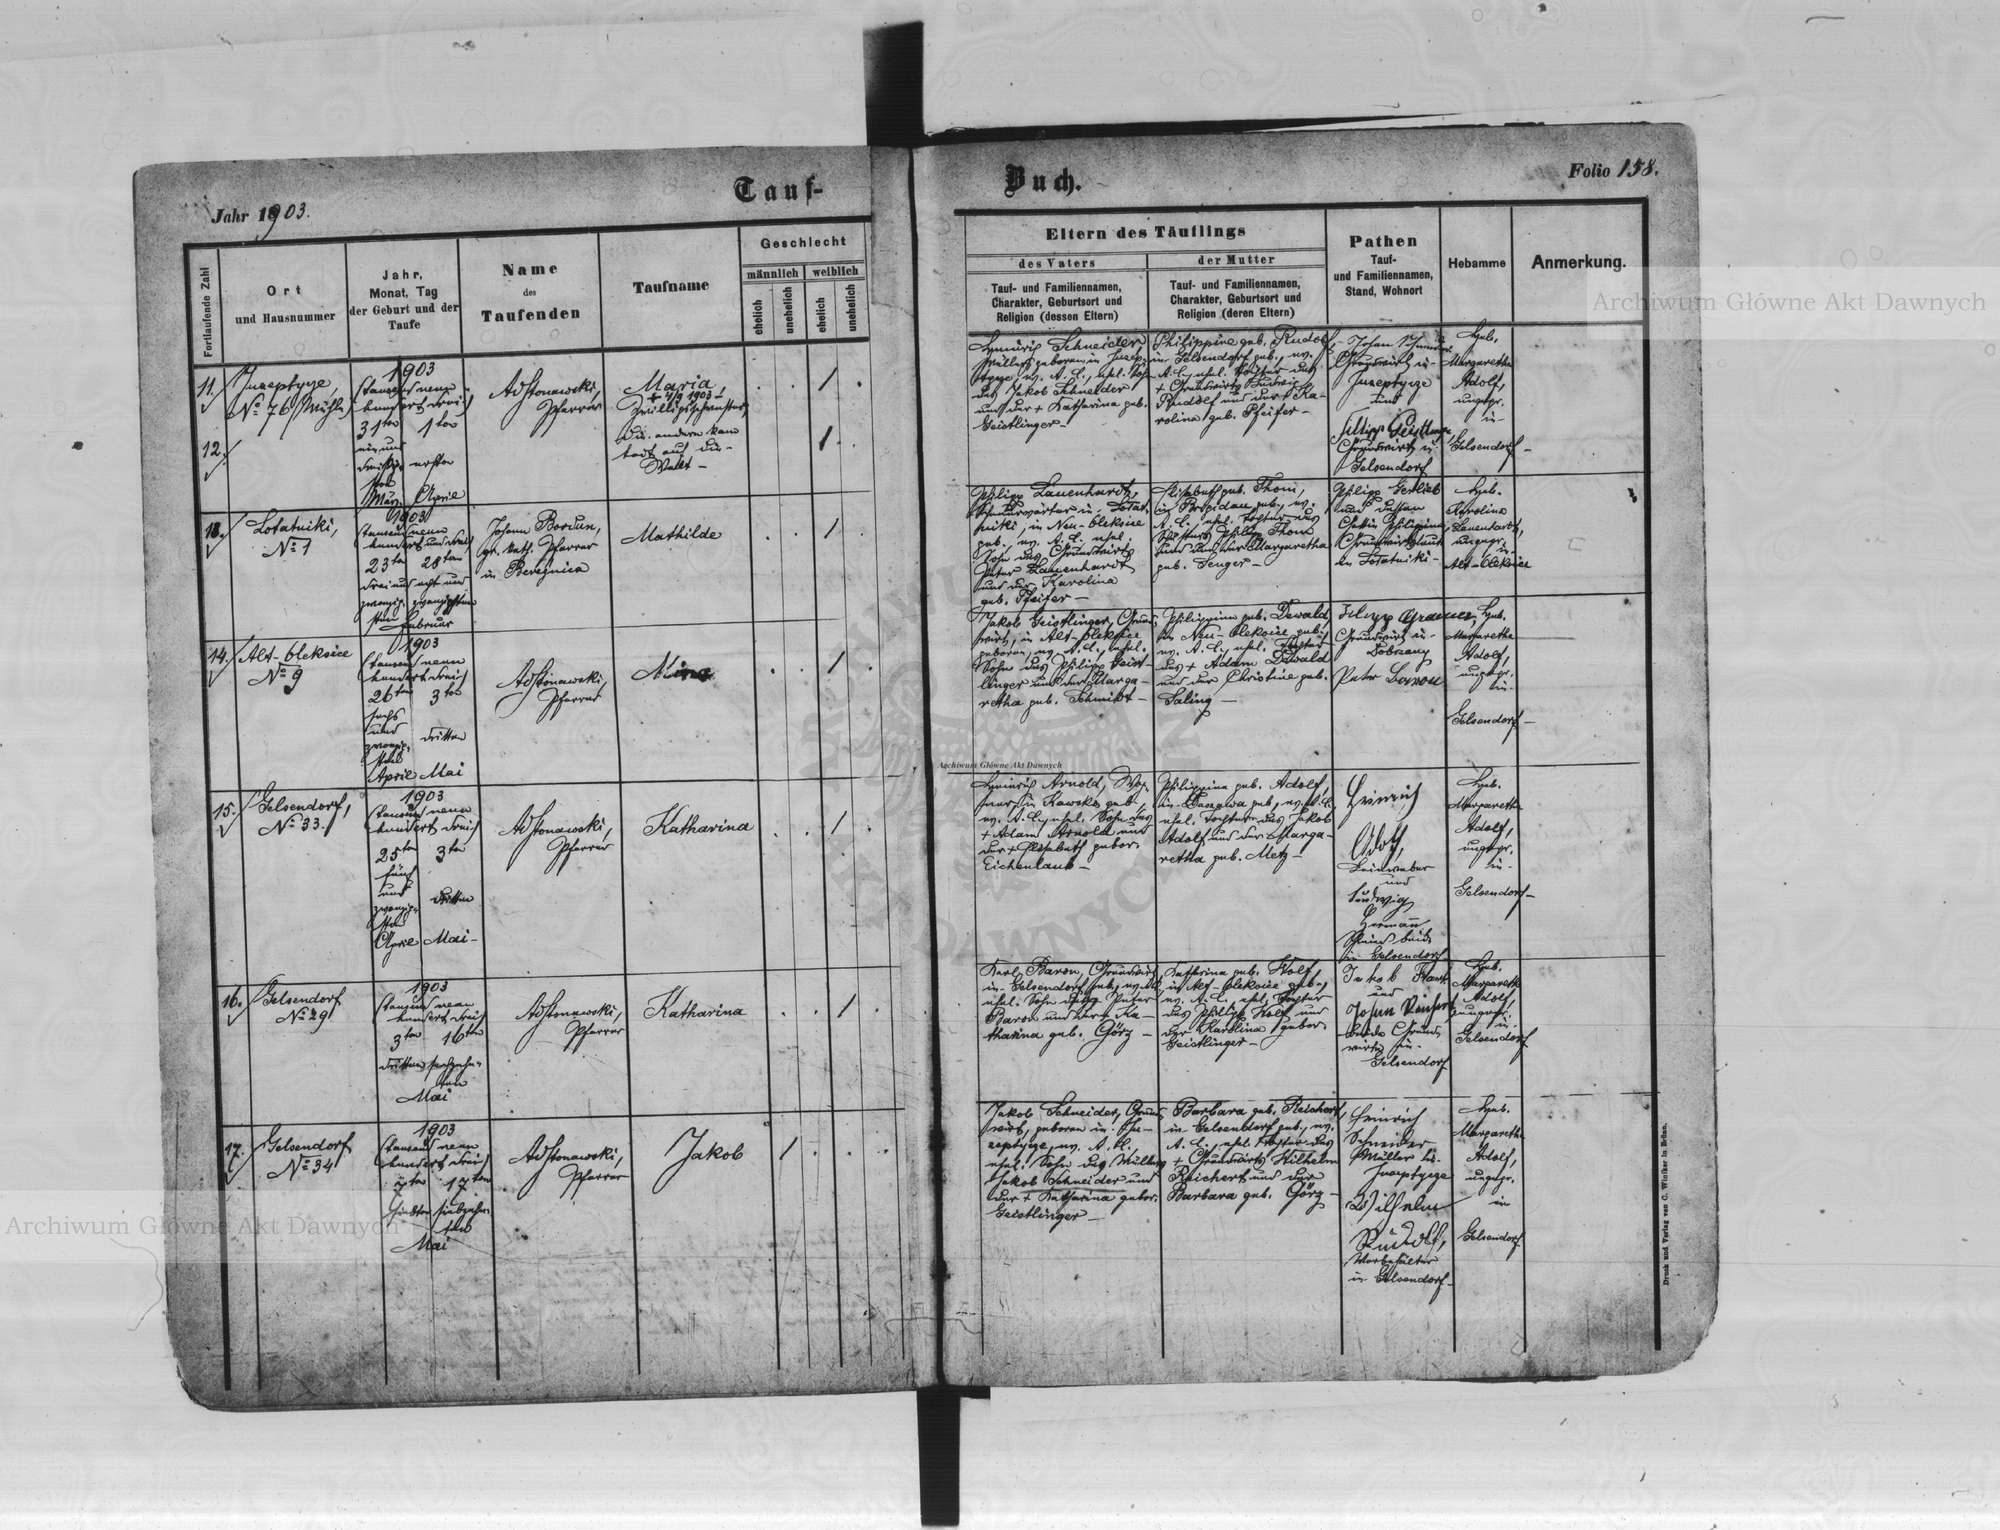 Tauf-
Buch.
Folio 158.
Jahr 1903.
Fortlaufende Zahl
Ort
und Hausnummer
Jahr,
Monat, Tag
der Geburt und der
Taufe
Name
des
Taufenden
Taufname
Geschlecht
männlich
weiblich
ehelich
unehelich
ehelich
unehelich
Eltern des Täuflings
des Vaters
Tauf- und Familiennamen,
Charakter, Geburtsort und
Religion (dessen Eltern)
der Mutter
Tauf- und Familiennamen,
Charakter, Geburtsort und
Religion (deren Eltern)
Pathen
Tauf-
und Familiennamen,
Stand, Wohnort
Hebamme
Anmerkung.
11.
Juzeptycze,
No 76 (Mühle)
1903
tausend neun
hundert drei
31ten 1ten
ein und
dreißig ersten
sten
März April
Pfarrer
Maria,
+ 4/9 1903 -
Zwillingsschwester,
die andere kam
todt auf die
Welt -
12.
Heinrich Schneider,
Müller, geboren in
des Jakob Schneider
und der + Katharina geb.
Geistlinger -
Philippine geb. Rudolf,
in Gelsendorf geb., ev.
A. C., ehel. Tochter des
+ Grundwirts Ludwig
Rudolf und der + Ka-
rolina geb. Pfeifer -
Johan Schneider
Grundwirt in
Juzeptycze
und
Filipp Geistlinger,
Grundwirt in
Gelsendorf
Heb.
Margaretha
Adolf,
ungepr.
in
Gelsendorf -
13.
Lotatniki,
No 1
1903
tausend neun
hundert und drei
23ten 28ten
drei und acht und
zwanzig- zwanzigsten
sten
Februar
Johann Bordun,
gr. kath. Pfarrer
in Bereznica
Mathilde
Philipp Lauenhardt,
in Neu-Oleksice
geb. ev. A. C. ehel.
Sohn des Grundwirts
Peter Lauenhardt
und der Karolina
geb. Pfeifer -
Elisabeth geb. Thom,
in Brigidau geb., ev.
A. C., ehel. Tochter des
Philipp Thom
und der Margaretha
geb. Senger -
Philipp Gerlieb
und dessen
Gattin Philippina,
Grundwirtsleute
in Lotatniki -
Heb.
Karolina
Lauenhardt,
ungepr.
in
Alt-Oleksice
14.
Alt-Oleksice
No 9
1903
tausend neun
hundert drei
26ten 3ten
sechs
und
zwanzig- dritten
sten
April Mai
Pfarrer
Jakob Geistlinger, Grund-
wirt, in Alt-Oleksice
geboren, ev. A. C., ehel.
Sohn des Philipp Geist-
linger und der Marga-
retha geb. Schmidt -
Philippina geb. Dewald,
in Neu-Oleksice geb.,
ev. A. C., ehel. Tochter
des + Adam Dewald
und der Christine geb.
Saling -
Grundwirt in
Dobrzany
Peter Baron
Heb.
Margaretha
Adolf,
ungepr.
in
Gelsendorf -
15.
Gelsendorf,
No 33.
1903
tausend neun
hundert drei
25ten 3ten
fünf
und
zwanzig- dritten
sten
April Mai -
Pfarrer
Katharina
Heinrich Arnold,
in Kawsko geb.,
ev. A. C., ehel. Sohn des
+ Adam Arnold und
der + Elisabeth gebor.
Eichenlaub -
Philippina geb. Adolf,
in geb., ev. A. C.,
ehel. Tochter des Jakob
Adolf und der Marga-
retha geb. Metz -
Heinrich
Adolf,
Leinweber
und
Ludwig
Hermann
beide
in Gelsendorf
Heb.
Margaretha
Adolf,
ungepr.
in
Gelsendorf -
16.
Gelsendorf
No 29
1903
tausend neun
hundert drei
3ten 16ten
dritten sechzehn-
ten
Mai
Pfarrer
Katharina
Karl Baron, Grundwirt
in Gelsendorf geb., ev. A. C.
ehel. Sohn des Peter
Baron und der + Ka-
tharina geb. Görz -
Katharina geb. Wolf,
in Alt-Oleksice geb.,
ev. A. C., ehel. Tochter
des Philipp Wolf und
der Karolina gebor.
Geistlinger -
Jakob
und
Johann Reichert
beide Grund-
wirte in
Gelsendorf
Heb.
Margaretha
Adolf,
ungepr.
in
Gelsendorf
17.
Gelsendorf
No 34
1903
tausend neun
hundert drei
7ten 17ten
siebten siebzehn-
ten
Mai
Pfarrer
Jakob
Jakob Schneider, Grund-
wirt, geboren in Ju-
zeptycze, ev. A. C.
ehel. Sohn des Müllers
Jakob Schneider und
der + Katharina gebor.
Geistlinger -
Barbara geb. Reichert,
in Gelsendorf geb., ev.
A. C., ehel. Tochter des
+ Grundwirts Wilhelm
Reichert und der
Barbara geb. Görz -
Heinrich
Schneider
Müller in
Juzeptycze
Wilhelm
Rudolf,
in Gelsendorf -
Heb.
Margaretha
Adolf,
ungepr.
in
Gelsendorf
Druck und Verlag von C. Winiker in Brünn.
Archiwum Główne Akt Dawnych
Archiwum Główne Akt Dawnych
Archiwum Główne Akt Dawnych